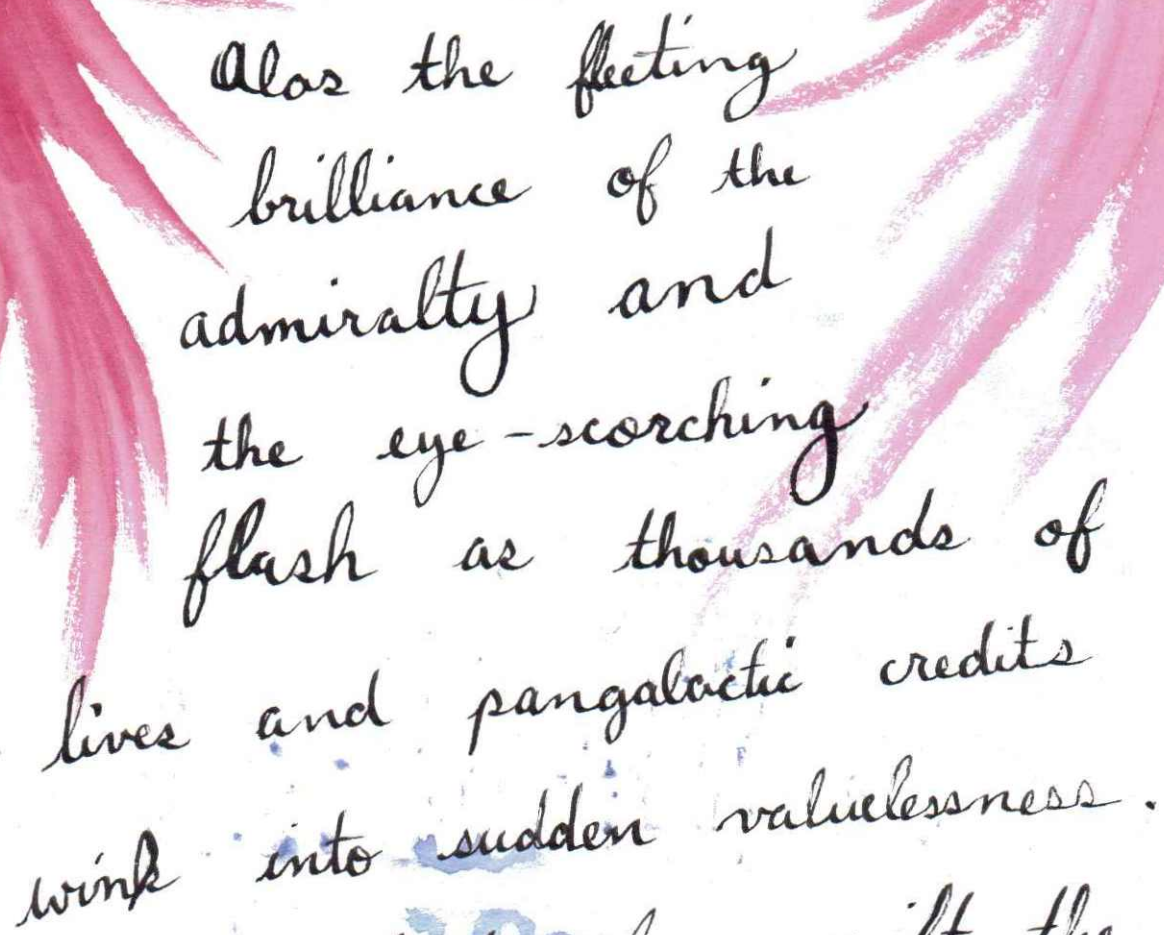 Alas the fleeting
brilliance of the
admiralty and
the eye-scorching
flash as thousands of
lives and pangalactic credits
wink into sudden valuelessness.
the